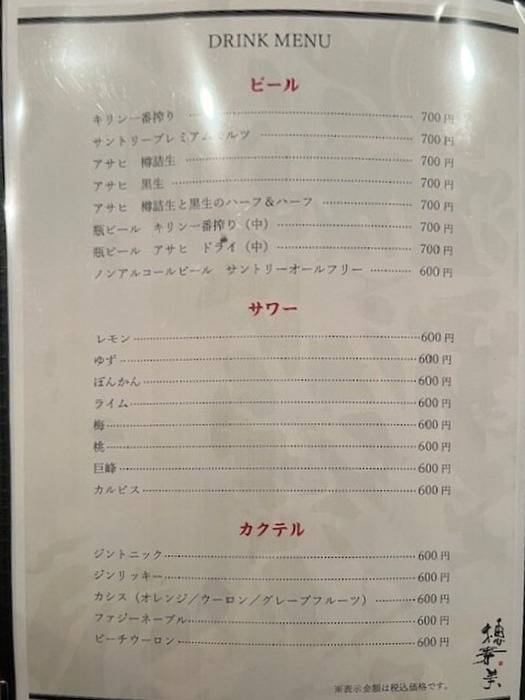 DRINK MENU
ビール
キリン一番搾り 700円
サントリープレミアムモルツ 700円
アサヒ 樽詰生 700円
アサヒ 黒生 700円
アサヒ 樽詰生と黒生のハーフ&ハーフ 700円
瓶ビール キリン一番搾り(中) 700円
瓶ビール アサヒ ドライ(中) 700円
ノンアルコールビール サントリーオールフリー 600円
サワー
レモン 600円
ゆず 600円
ぽんかん 600円
ライム 600円
梅 600円
桃 600円
巨峰 600円
カルピス 600円
カクテル
ジントニック 600円
ジンリッキー 600円
カシス(オレンジ/ウーロン/グレープフルーツ) 600円
ファジーネーブル 600円
ピーチウーロン 600円
※表示金額は税込価格です。